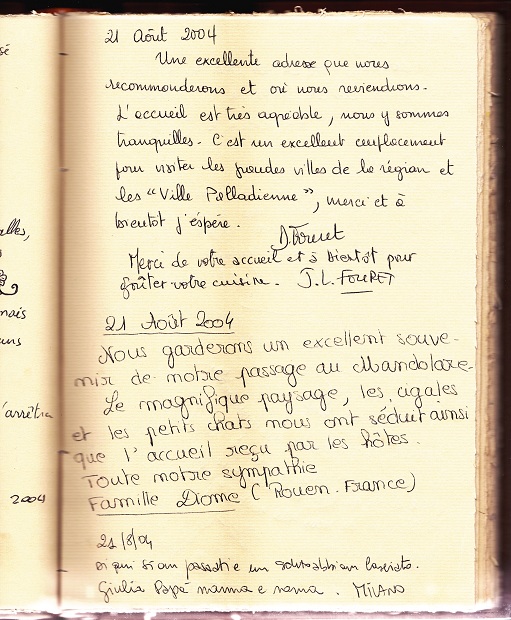 sé
alles,
mais
ans
'arrêtra
2004
21 Août 2004
Une excellente adresse que nous
recommanderons et où nous reviendrons.
L'accueil est très agréable, nous y sommes
tranquilles. C'est un excellent emplacement
pour visiter les grandes villes de la région et
les "Ville Pelladienne", merci et à
bientôt j'espère.
D. Fouret
Merci de votre accueil et à bientôt pour
goûter votre cuisine. J.L. FOURET
21 Août 2004
Nous garderons un excellent souve-
nir de notre passage au Mandolare.
Le magnifique paysage, les cigales
et les petits chats nous ont séduit ainsi
que l'accueil reçu par les hôtes.
Toute notre sympathie
Famille Diome (Rouen. France)
21/8/04
di qui siam passati e un
Giulia Papà mamma e nonna. MILANO